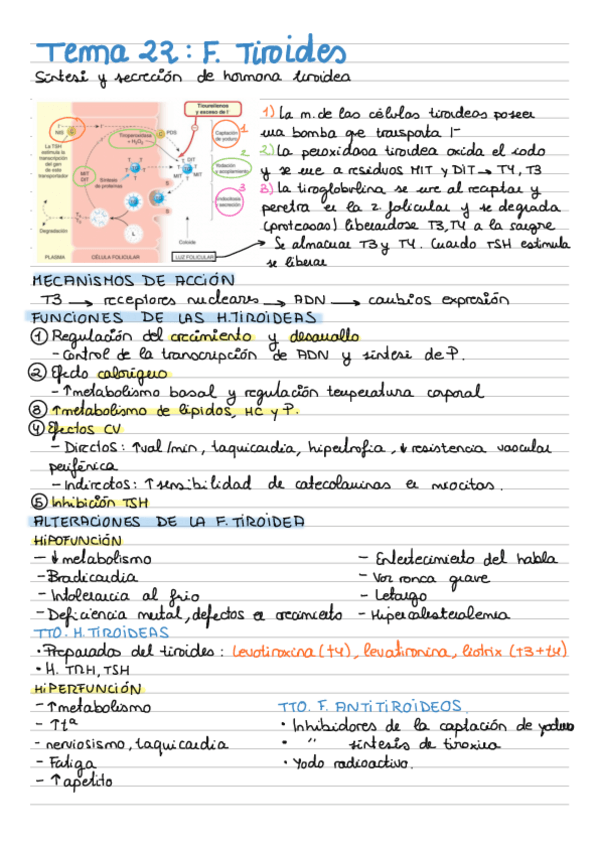 Tema 22: F. Tiroides
Síntesi y secreción de hormona tiroidea
Tiourelenos
y exceso de I⁻
La TSH
estimula la
transcripción
del gen
de este
transportador
NIS
I⁻
Tiroperoxidasa
+ H₂O₂
PDS
Captación
de yoduro
1
2
Yodación
y acoplamiento
3
Endocitosis
secreción
MIT
DIT
Síntesis
de proteínas
T
DIT
MIT
L
Degradación
Coloide
PLASMA
CÉLULA FOLICULAR
LUZ FOLICULAR
1) La m. de las células tiroideas poseen
una bomba que transporta I⁻
2) La peroxidasa tiroidea oxida el iodo
y se une a residuos MIT y DIT → T4, T3
3) La tiroglobulina se une al receptor y
penetra en la z. folicular y se degrada
(proteasas) liberandose T3, T4 a la sangre
- Se almacenan T3 y T4. Cuando TSH estimula
se liberan
MECANISMOS DE ACCIÓN
T3 → receptores nucleares → ADN → cambios expresión
FUNCIONES DE LAS H.TIROIDEAS
① Regulación del crecimiento y desarrollo
- Control de la transcripción de ADN y síntesi de P.
② Efecto calorígeno
- ↑metabolismo basal y regulación temperatura corporal
③ ↑metabolismo de lípidos, HC y P.
④ Efectos CV
- Directos: ↑val/min, taquicardia, hipertrofia, ↓ resistencia vascular
periférica
- Indirectos: ↑ sensibilidad de catecolaminas en miocitos.
⑤ Inhibición TSH
ALTERACIONES DE LA F. TIROIDEA
HIPOFUNCIÓN
- ↓ metabolismo
- Bradicardia
- Intolerancia al frío
- Deficiencia mental, defectos en crecimiento
- Enlentecimiento del habla
- Voz ronca grave
- Letargo
- Hipercolesterolemia
TTO. H. TIROIDEAS
• Preparados del tiroides: Levotiroxina (t4), levotironina, liotrix (T3+t4)
• H. TRH, TSH
HIPERFUNCIÓN
- ↑metabolismo
- ↑tª
- nerviosismo, taquicardia
- Fatiga
- ↑ apetito
TTO. F. ANTITIROIDEOS.
• Inhibidores de la captación de yoduro
• " síntesis de tiroxina
• Yodo radioactivo.